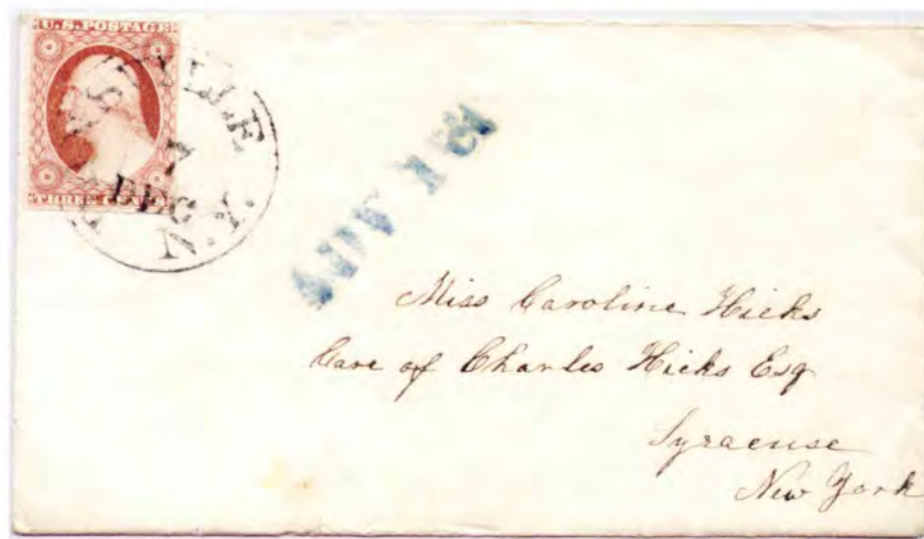 U.S. POSTAGE
THREE CENTS
7
DEC
N.Y.
Miss Caroline Hicks
Care of Charles Hicks Esq
Syracuse
New York